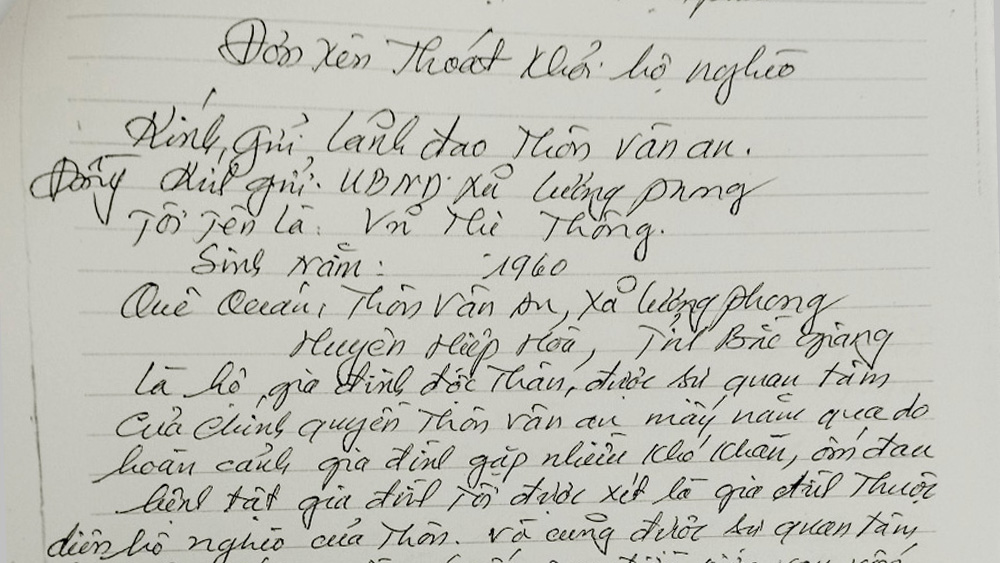 Đơn xin Thoát khỏi hộ nghèo
Kính, gửi lãnh đạo Thôn Vân an.
Đồng Kính gửi. UBND. xã lương phong
Tôi Tên là. Vũ Thị Thông.
Sinh năm: 1960
Quê Quán, Thôn Vân An, xã lương phong
Huyện Hiệp Hòa, Tỉnh Bắc Giang
là hộ, gia đình độc Thân, được sự quan tâm
của chính quyền Thôn Vân an mấy năm qua do
hoàn cảnh gia đình gặp nhiều khó khăn, ốm đau
bệnh tật gia đình Tôi được xét là gia đình Thuộc
diện hộ nghèo của Thôn. và cũng được sự quan tâm